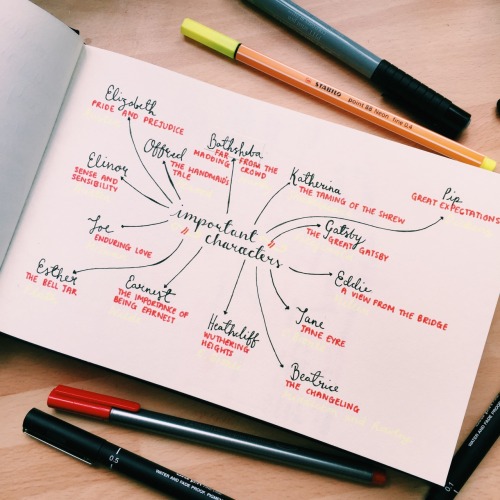 STABILO point 88 Neon fine 0,4
Elizabeth
PRIDE AND PREJUDICE
Offred
THE HANDMAID'S
TALE
Bathsheba
FAR FROM THE
MADDING CROWD
Elinor
SENSE AND
SENSIBILITY
Katherina
THE TAMING OF THE SHREW
Pip
GREAT EXPECTATIONS
Gatsby
THE GREAT GATSBY
Joe
ENDURING LOVE
"important
characters"
Eddie
A VIEW FROM THE BRIDGE
Esther
THE BELL JAR
Earnest
THE IMPORTANCE OF
BEING EARNEST
Heathcliff
WUTHERING
HEIGHTS
Jane
JANE EYRE
Beatrice
THE CHANGELING
0.5
WATER AND FADE PROOF, PIGMENT
WATER AND FADE PROOF, PIG